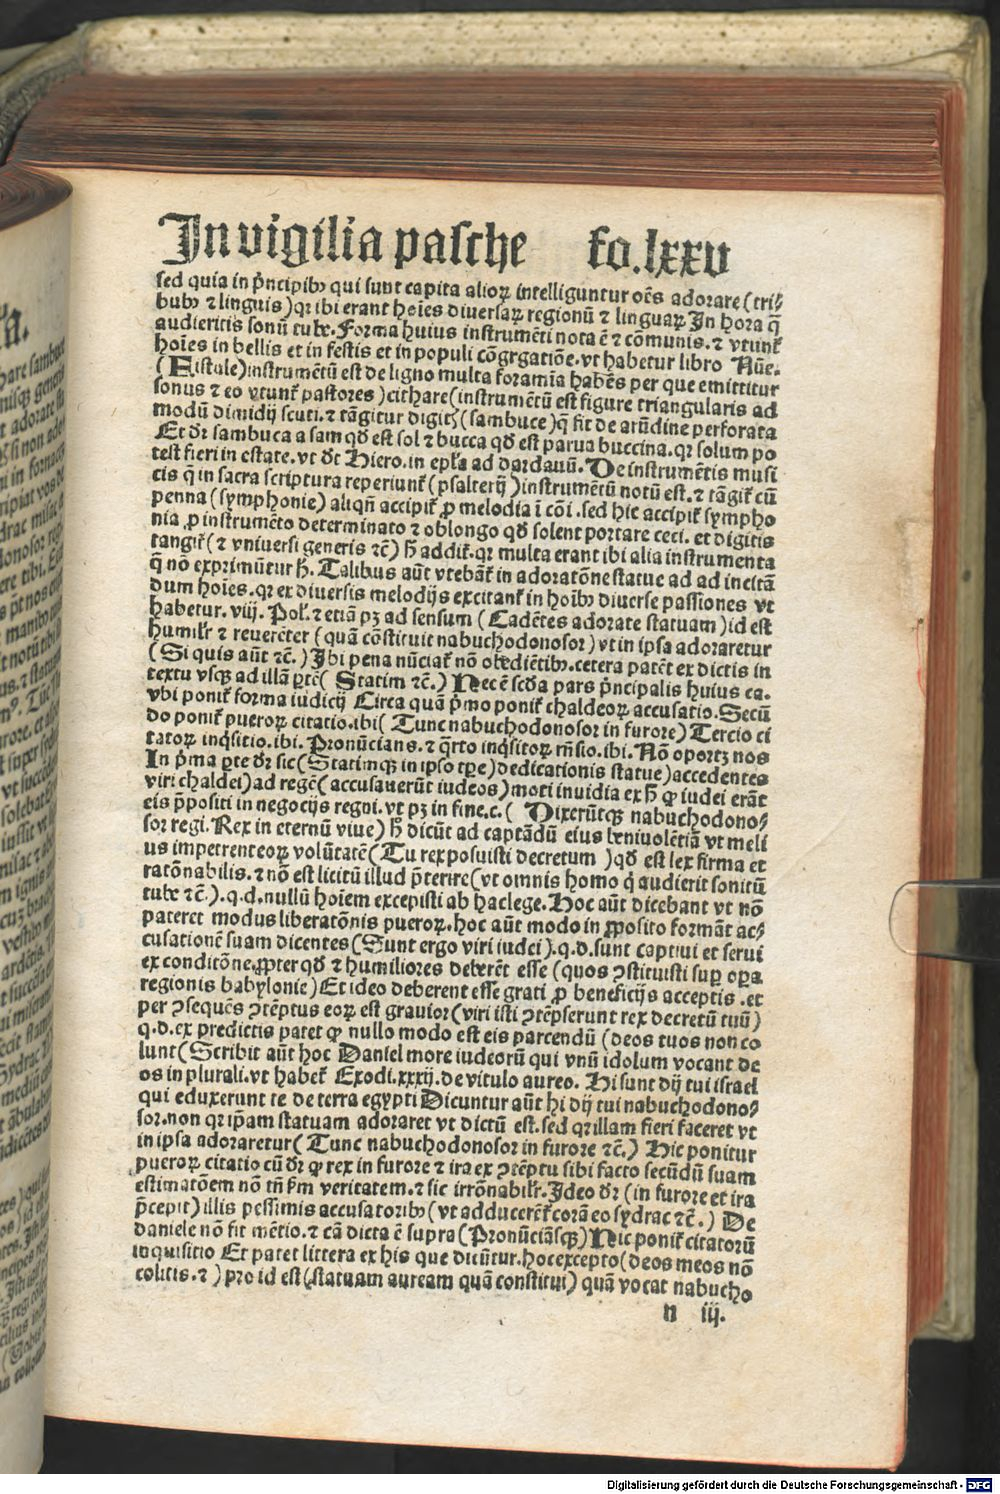 In vigilia pasche fo.lxxv
sed quia in p̃ncipibꝰ qui sunt capita alioꝝ intelliguntur oẽs adorare (tri⸗
bubꝰ ⁊ linguis) qꝛ ibi erant hoĩes diuersaꝝ regionũ ⁊ linguaꝝ In hora q̃
audieritis sonũ tube. Forma huius instrumẽti nota ẽ ⁊ cõmunis. ⁊ vtunt᷑
hoĩes in bellis et in festis et in populi cõgrgatiõe. vt habetur libro Nũe.
(Fistule) instrumẽtũ est de ligno multa foramĩa habẽs per que emittitur
sonus ⁊ eo vtunt᷑ pastores) cithare (instrumẽtũ est figure triangularis ad
modũ dimidij scuti. ⁊ tãgitur digitꝭ (sambuce) q̃ fit de arũdine perforata
Et dr̃ sambuca a sam qđ est sol ⁊ bucca qđ est parua buccina. qꝛ solum po
test fieri in estate. vt dt̃ Hiero. in epl̃a ad dardanũ. De instrumẽtis musi
cis q̃ in sacra scriptura reperiunt᷑ (psalterij) instrumẽtũ notũ est. ⁊ tãgit᷑ cũ
penna (symphonie) aliqñ accipit᷑ ꝓ melodia ĩ cõi. sed hic accipit᷑ sympho
nia ꝓ instrumẽto determinato ⁊ oblongo qđ solent portare ceci. et digitis
tangit᷑ (⁊ vniuersi generis ⁊c̃) h̃ addit᷑. qꝛ multa erant ibi alia instrumenta
q̃ nõ exprimũtur h̃. Talibus aũt vtebãt᷑ in adoratõne statue ad ad incitã
dum hoĩes. qꝛ ex diuersis melodijs excitant᷑ in hoĩbꝰ diuerse passiones vt
habetur. viij. Pol᷑. ⁊ etiã pꝫ ad sensum (Cadẽtes adorate statuam) id est
humilr̃ ⁊ reuerẽter (quã cõstituit nabuchodonosor) vt in ipsa adoraretur
(Si quis aũt ⁊c̃.) Ibi pena nũciat᷑ nõ obediẽtibꝰ. cetera patẽt ex dictis in
textu vsqꝫ ad illã ꝑtẽ (Statim ⁊c̃.) Nec ẽ scđa pars p̃ncipalis huius ca.
vbi ponit᷑ forma iudicij Circa quã p̃mo ponit᷑ chaldeoꝝ accusatio. Secũ
do ponit᷑ pueroꝝ citatio. ibi (Tunc nabuchodonosor in furore) Tercio ci
tatoꝝ inq̃sitio. ibi. Pronũcians. ⁊ q̃rto inq̃sitoꝝ rñsio. ibi. Nõ oportꝫ nos
In p̃ma ꝑte dr̃ sic (Statimqꝫ in ipso tꝑe) dedicationis statue) accedentes
viri chaldei) ad regẽ (accusauerũt iudeos) moti inuidia ex h̃ ꝙ iudei erãt
eis p̃positi in negocijs regni. vt pꝫ in fine. c. (Dixerũtqꝫ nabuchodono⸗
sor regi. Rex in eternũ viue) h̃ dicũt ad captãdũ eius beniuolẽtiã vt meli
us impetrent eoꝝ volũtatẽ (Tu rex posuisti decretum) qđ est lex firma et
ratõnabilis. ⁊ nõ est licitũ illud p̃terire (vt omnis homo q̃ audierit sonitũ
tube ⁊c̃.). q.d. nullũ hoĩem excepisti ab hac lege. Hoc aũt dicebant vt nõ
pateret modus liberatõnis pueroꝝ. hoc aũt modo in ꝓposito formãt ac⸗
cusationẽ suam dicentes (Sunt ergo viri iudei). q.d. sunt captiui et serui
ex conditõne. ꝓpter qđ ⁊ humiliores deberẽt esse (quos ꝯstituisti suꝑ oꝑa
regionis babylonie) Et ideo deberent esse grati ꝓ beneficijs acceptis. et
per ꝯsequẽs ꝯtẽptus eoꝝ est grauior (viri isti ꝯtẽpserunt rex decretũ tuũ)
q.d. ex predictis patet ꝙ nullo modo est eis parcendũ (deos tuos non co
lunt (Scribit aũt hoc Daniel more iudeorũ qui vnũ idolum vocant de
os in plurali. vt habet᷑ Exodi. xxxij. de vitulo aureo. Hi sunt dij tui israel
qui eduxerunt te de terra egypti Dicuntur aũt hi dij tui nabuchodono⸗
sor. non qꝛ ip̃am statuam adoraret vt dictũ est. sed qꝛ illam fieri faceret vt
in ipsa adoraretur (Tunc nabuchodonosor in furore ⁊c̃.) Hic ponitur
pueroꝝ citatio cũ dr̃ ꝙ rex in furore ⁊ ira ex ꝯtẽptu sibi facto secũdũ suam
estimatõem nõ tñ ẽm veritatem. ⁊ sic irrõnabilr̃. Ideo dr̃ (in furore et ira
p̃cepit) illis pessimis accusatoribꝰ (vt adducerẽt᷑ corã eo sydrac ⁊c̃.) De
daniele nõ fit mẽtio. ⁊ cã dicta ẽ supra (Pronũciãsqꝫ) Nic ponit᷑ citatorũ
inquisitio Et patet littera ex his que dicũtur. hoc excepto (deos meos nõ
colitis. ⁊) pro id est (statuam auream quã constitui) quã vocat nabucho
n iij.
Digitalisierung gefördert durch die Deutsche Forschungsgemeinschaft - DFG